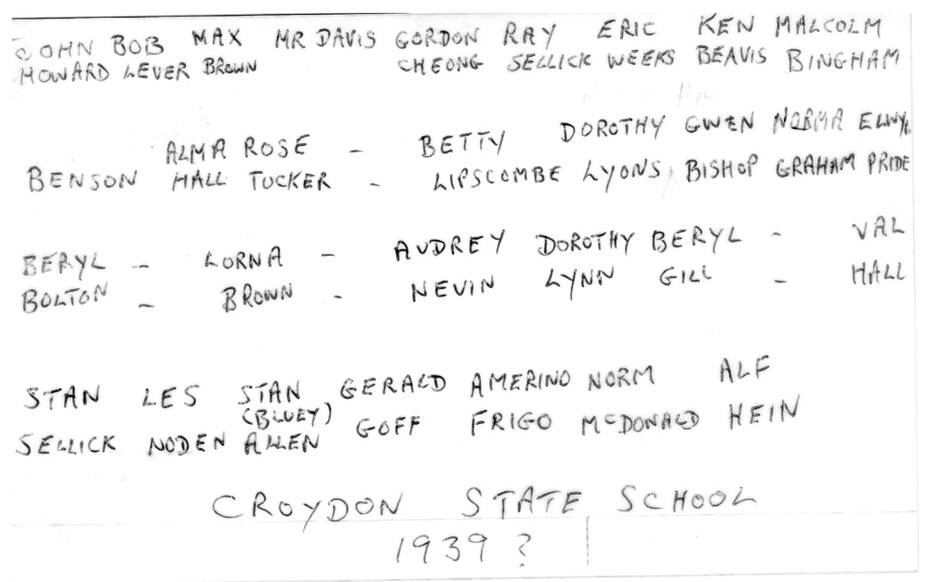 JOHN BOB MAX MR DAVIS GORDON RAY ERIC KEN MALCOLM
HOWARD LEVER BROWN CHEONG SELLICK WEEKS BEAVIS BINGHAM
ALMA ROSE - BETTY DOROTHY GWEN NORMA
BENSON HALL TUCKER - LIPSCOMBE LYONS, BISHOP GRAHAM PRIDE
BERYL - LORNA - AUDREY DOROTHY BERYL - VAL
BOLTON - BROWN - NEVIN LYNN GILL - HALL
STAN LES STAN GERALD AMERINO NORM ALF
(BLUEY)
SELLICK NODEN ALLEN GOFF FRIGO McDONALD HEIN
CROYDON STATE SCHOOL
1939 ?